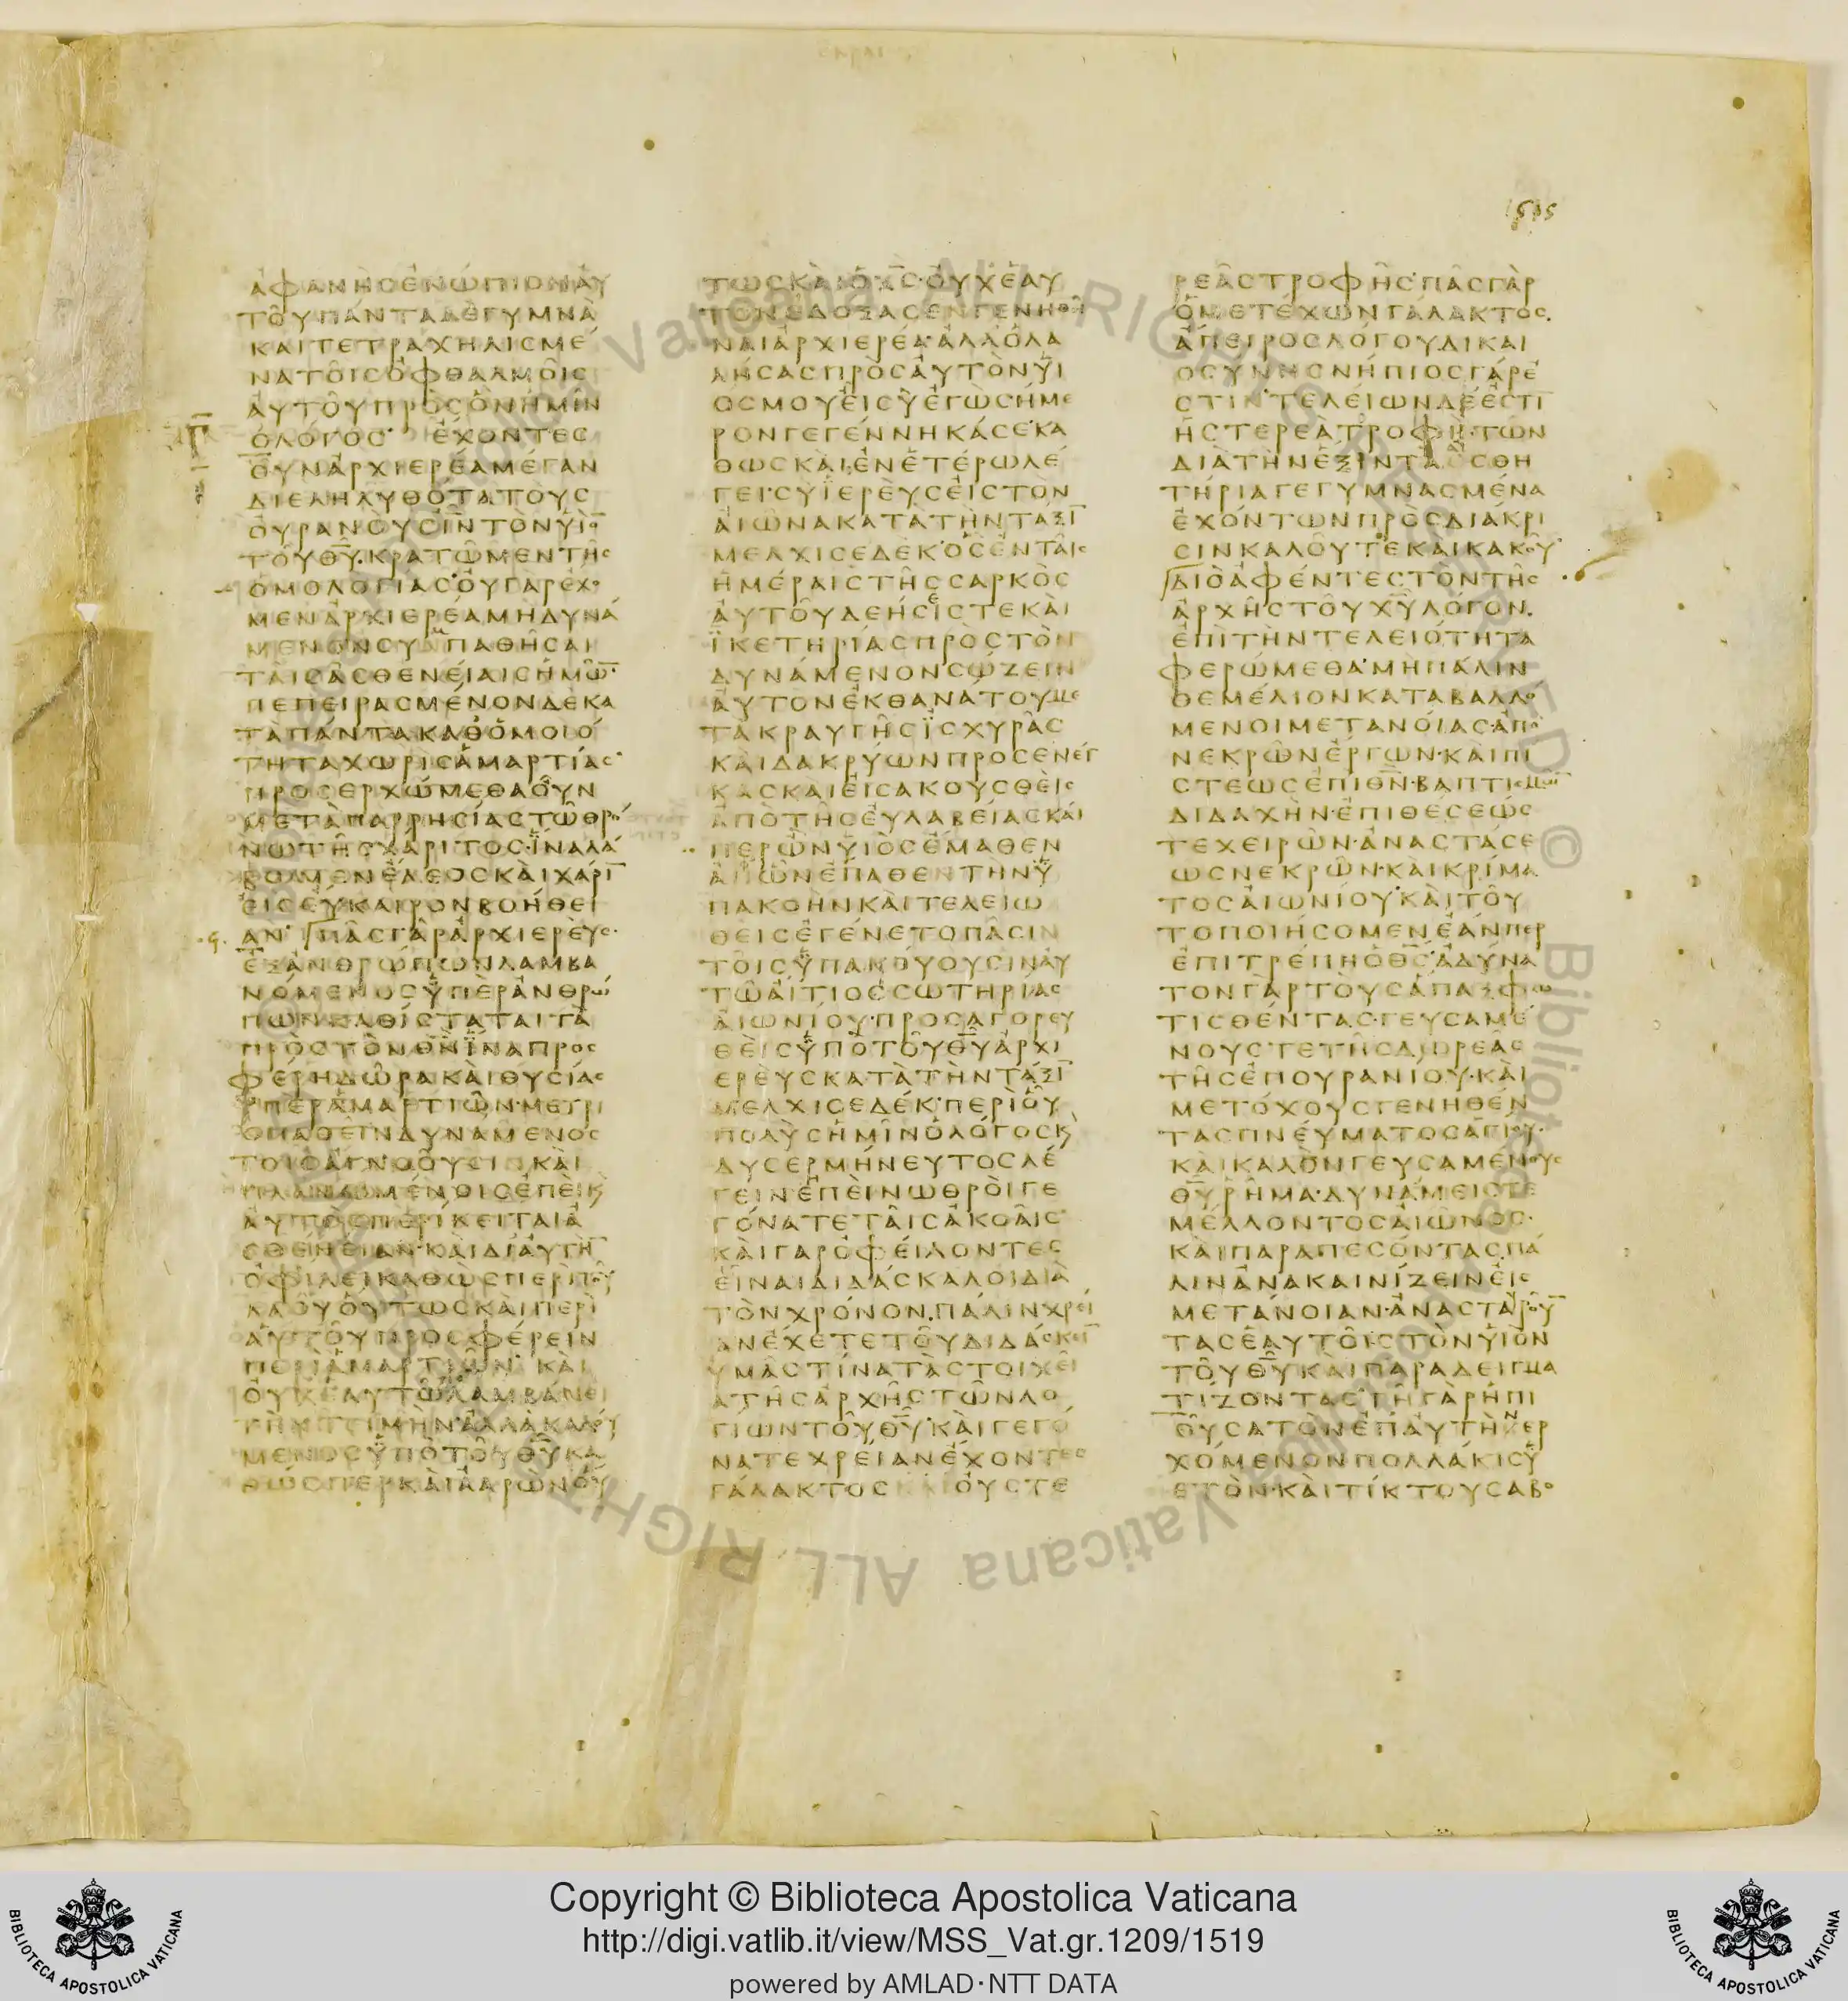 1515
ἀφανὴς ἐνώπιον ἀυ
τοῦ πάντα δὲ γυμνὰ
καὶ τετραχηλισμέ
να τοῖς ὀφθαλμοῖς
ἀυτοῦ πρὸς ὃν ἡμῖν
ὁ λόγος· ἔχοντες
οὖν ἀρχιερέα μέγαν
διεληλυθότα τοὺς
ὀυρανοὺς ι̅ν̅ τὸν υἱο̅
τοῦ θ̅υ̅· κρατῶμεν τῆς
ὁμολογίας· ὀυ γαρ ἔχο
μεν ἀρχιερέα μὴ δυνά
μενον συνπαθῆσαι
ταῖς ἀσθενείαις ἡμῶ̅·
πεπειρασμένον δὲ κα
τὰ πάντα καθ ὁμοιό
τητα χωρὶς ἁμαρτίας·
προσερχώμεθα οὖν
μετὰ παρρησίας τῶ θρό
νω τῆς χάριτος· ἵνα λά
βωμεν ἔλεος κὰι χάρι̅
εἰς ἔυκαιρον βοήθει
αν· πᾶς γὰρ ἀρχιερὲυς·
ἐξ ἀνθρώπων λαμβα
νόμενος ὑπὲρ ἀνθρώ
πων καθίσταται τὰ
πρὸς τὸν θ̅ν̅ ἵνα προς
φέρη δῶρα κὰι θυσίας
ὑπὲρ ἁμαρτιῶν· μετρι
οπαθεῖν δυνάμενος
τοῖς ἀγνοοῦσι κὰι
πλανωμένοις ἐπεὶ κ̀
ἀυτὸς περίκειται ἀ
σθένειαν· κὰι δι ἀυτὴ̅
ὀφίλει καθὼς περὶ τοῦ
λαοῦ ὅυτως κὰι περὶ
ἀυτοῦ προσφέρειν
περὶ ἁμαρτιῶν· κὰι
ὀυχ ἑαυτῶ λαμβάνει
τὴν τιμὴν· ἀλλὰ καλού
μενος ὑπὸ τοῦ θ̅υ̅ κα
θώσπερ κὰι ἀαρών· ὅυ
τως κὰι ὁ χ̅ς̅· ὀυχ ἑαυ
τὸν ἐδόξασεν γενηθῆ
ναι ἀρχιερέα· ἀλλ ὁ λα
λήσας πρὸς ἀυτὸν υἱ
ος μου εἶ σὺ ἐγὼ σήμε
ρον γεγέννηκά σε· κα
θως κὰι ἐν ἑτέρω λέ
γει· σὺ ϊερὲυς εἰς τὸν
ἀιῶνα κατὰ τὴν τάξι̅
μελχισεδεκ· ὃς ἐν τᾶις
ἡμέραις τῆς σαρκὸς
ἀυτοῦ δεήσεις τε κὰι
ϊκετηρίας πρὸς τὸν
δυνάμενον σώζειν
ἀυτὸν ἐκ θανάτου με
τὰ κραυγῆς ϊσχυρᾶς
κὰι δακρύων προσενέγ
κας κὰι εἰσακουσθεὶς
ἀπὸ τῆς ἐυλαβείας κάι
περ ὢν υἱὸς ἔμαθεν
ἀφ ὧν ἔπαθεν τὴν ὑ
πακοὴν κὰι τελειω
θεὶς ἐγένετο πᾶσιν
τοῖς ὑπακούουσιν ἀυ
τῶ ἄιτιος σωτηρίας
ἀιωνίου· προσαγορευ
θεὶς ὑπὸ τοῦ θ̅υ̅ ἀρχι
ερὲυς κατὰ τὴν τάξι̅
μελχισεδέκ· περὶ οὗ
πολὺς ἡμῖν ὁ λόγος κ̀
δυσερμήνευτος λέ
γειν ἐπεὶ νωθροὶ γε
γόνατε ταῖς ἀκοᾶις·
κὰι γαρ ὀφείλοντες
εἶναι διδάσκαλοι διὰ
τὸν χρόνον. πάλιν χρεί
αν ἔχετε τοῦ διδάσκει̅
υμᾶς τίνα τὰ στοιχεῖ
α τῆς ἀρχῆς τῶν λο
γίων τοῦ θ̅υ̅· κὰι γεγό
νατε χρείαν ἔχοντες
γάλακτος και ὀυ στε
ρεᾶς τροφῆς· πᾶς γὰρ
ὁ μετέχων γάλακτος.
ἄπειρος λόγου δικαι
οσύνης νήπιος γάρ ἐ
στιν· τελείων δέ ἐστι̅
ἡ στερεὰ τροφή· τῶν
διὰ τὴν ἕξιν τὰ ἀισθη
τήρια γεγυμνασμένα
ἐχόντων πρὸς διάκρι
σιν καλοῦ τε και κακοῦ·
διὸ ἀφέντες τὸν τῆς
ἀρχῆς τοῦ χ̅υ̅ λόγον.
ἐπὶ τὴν τελειότητα
φερώμεθα· μὴ πάλιν
θεμέλιον καταβαλλό
μενοι μετανόιας· ἀπὸ
νεκρῶν ἔργων· κὰι πί
στεως ἐπὶ θ̅ν̅· βαπτισμῶ̅
διδαχὴν· ἐπιθέσεώς
τε χειρῶν· ἀναστάσε
ως νεκρῶν· κὰι κρίμα
τος ἀιωνίου· κὰι τοῦ
το ποιήσομεν ἐάνπερ
ἐπιτρέπη ὁ θ̅ς̅· ἀδύνα
τον γὰρ τοὺς ἅπαξ φω
τισθέντας· γευσαμέ
νους τε τῆς δωρεᾶς
τῆς ἐπουρανίου· κὰι
μετόχους γενηθέν
τας πνέυματος ἁγίου·
κὰι καλὸν γευσαμένους
θ̅υ̅ ῥῆμα· δυνάμεις τε
μέλλοντος ἀιῶνος·
κὰι παραπεσόντας. πά
λιν ἀνακαινίζειν εἰς
μετάνοιαν· ἀνασταυρου̅
τας ἑαυτοῖς τὸν υἱὸν
τοῦ θ̅υ̅ κὰι παραδειγμα
τίζοντας· γῆ γὰρ ἡ πι
οῦσα τὸν ἐπ ἀυτὴν ερ
χόμενον πολλάκις ὑ
ετὸν· κὰι τίκτουσα βο
Copyright © Biblioteca Apostolica Vaticana
http://digi.vatlib.it/view/MSS_Vat.gr.1209/1519
powered by AMLAD·NTT DATA
BIBLIOTECA APOSTOLICA VATICANA
BIBLIOTECA APOSTOLICA VATICANA